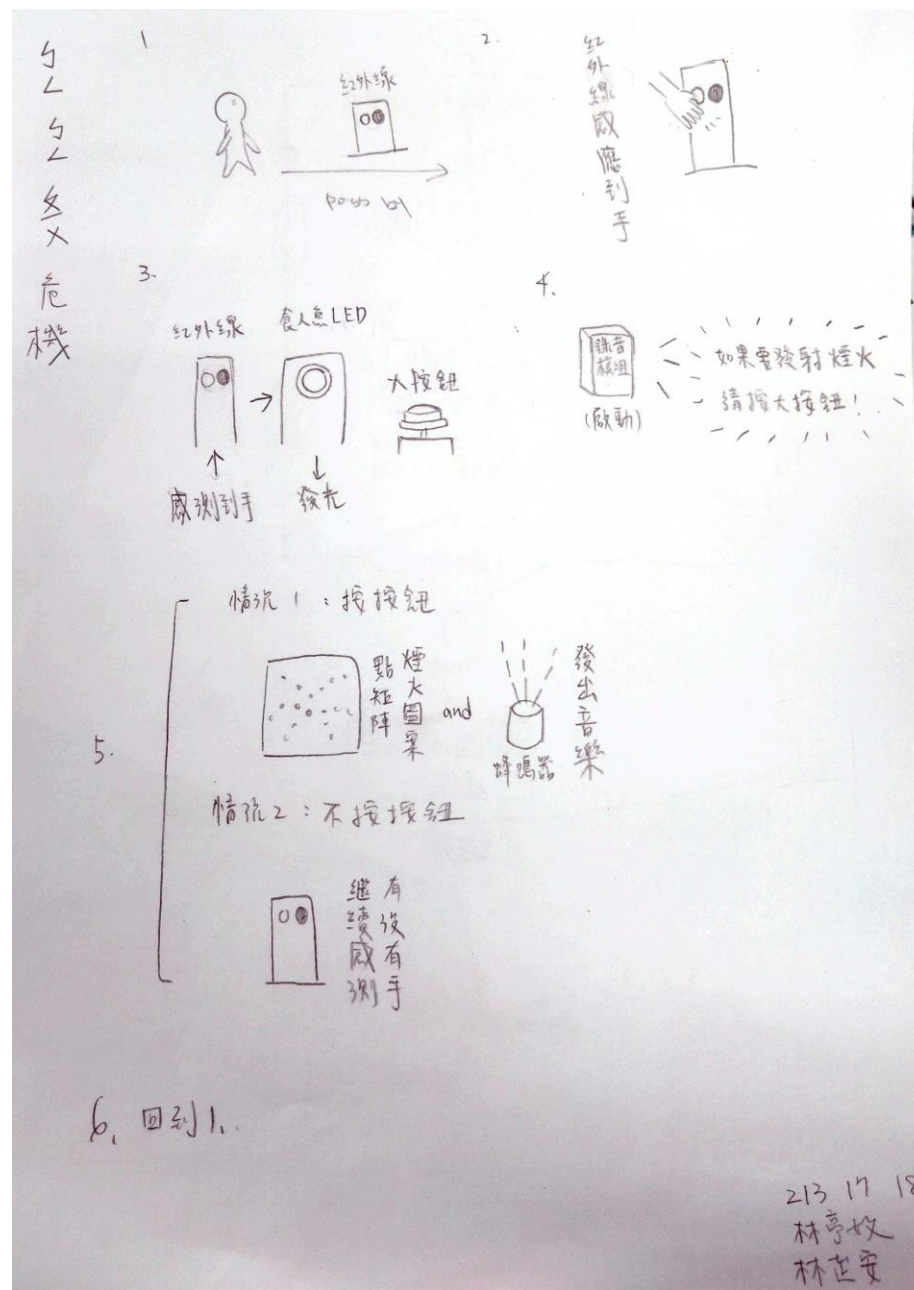 ㄅㄥㄅㄥ爻危機
1
紅外線
pass by
2.
紅外線感應到手
3.
紅外線
食人魚LED
大按鈕
感測到手
發光
4.
錄音
模組
(啟動)
如果要發射煙火
請按大按鈕!
5.
情況1:按按鈕
煙火圖案
點矩陣
and
蜂鳴器
發出音樂
情況2:不按按鈕
有沒有手
繼續感測
6. 回到1.
213 17 18
林亭妏
林芷安